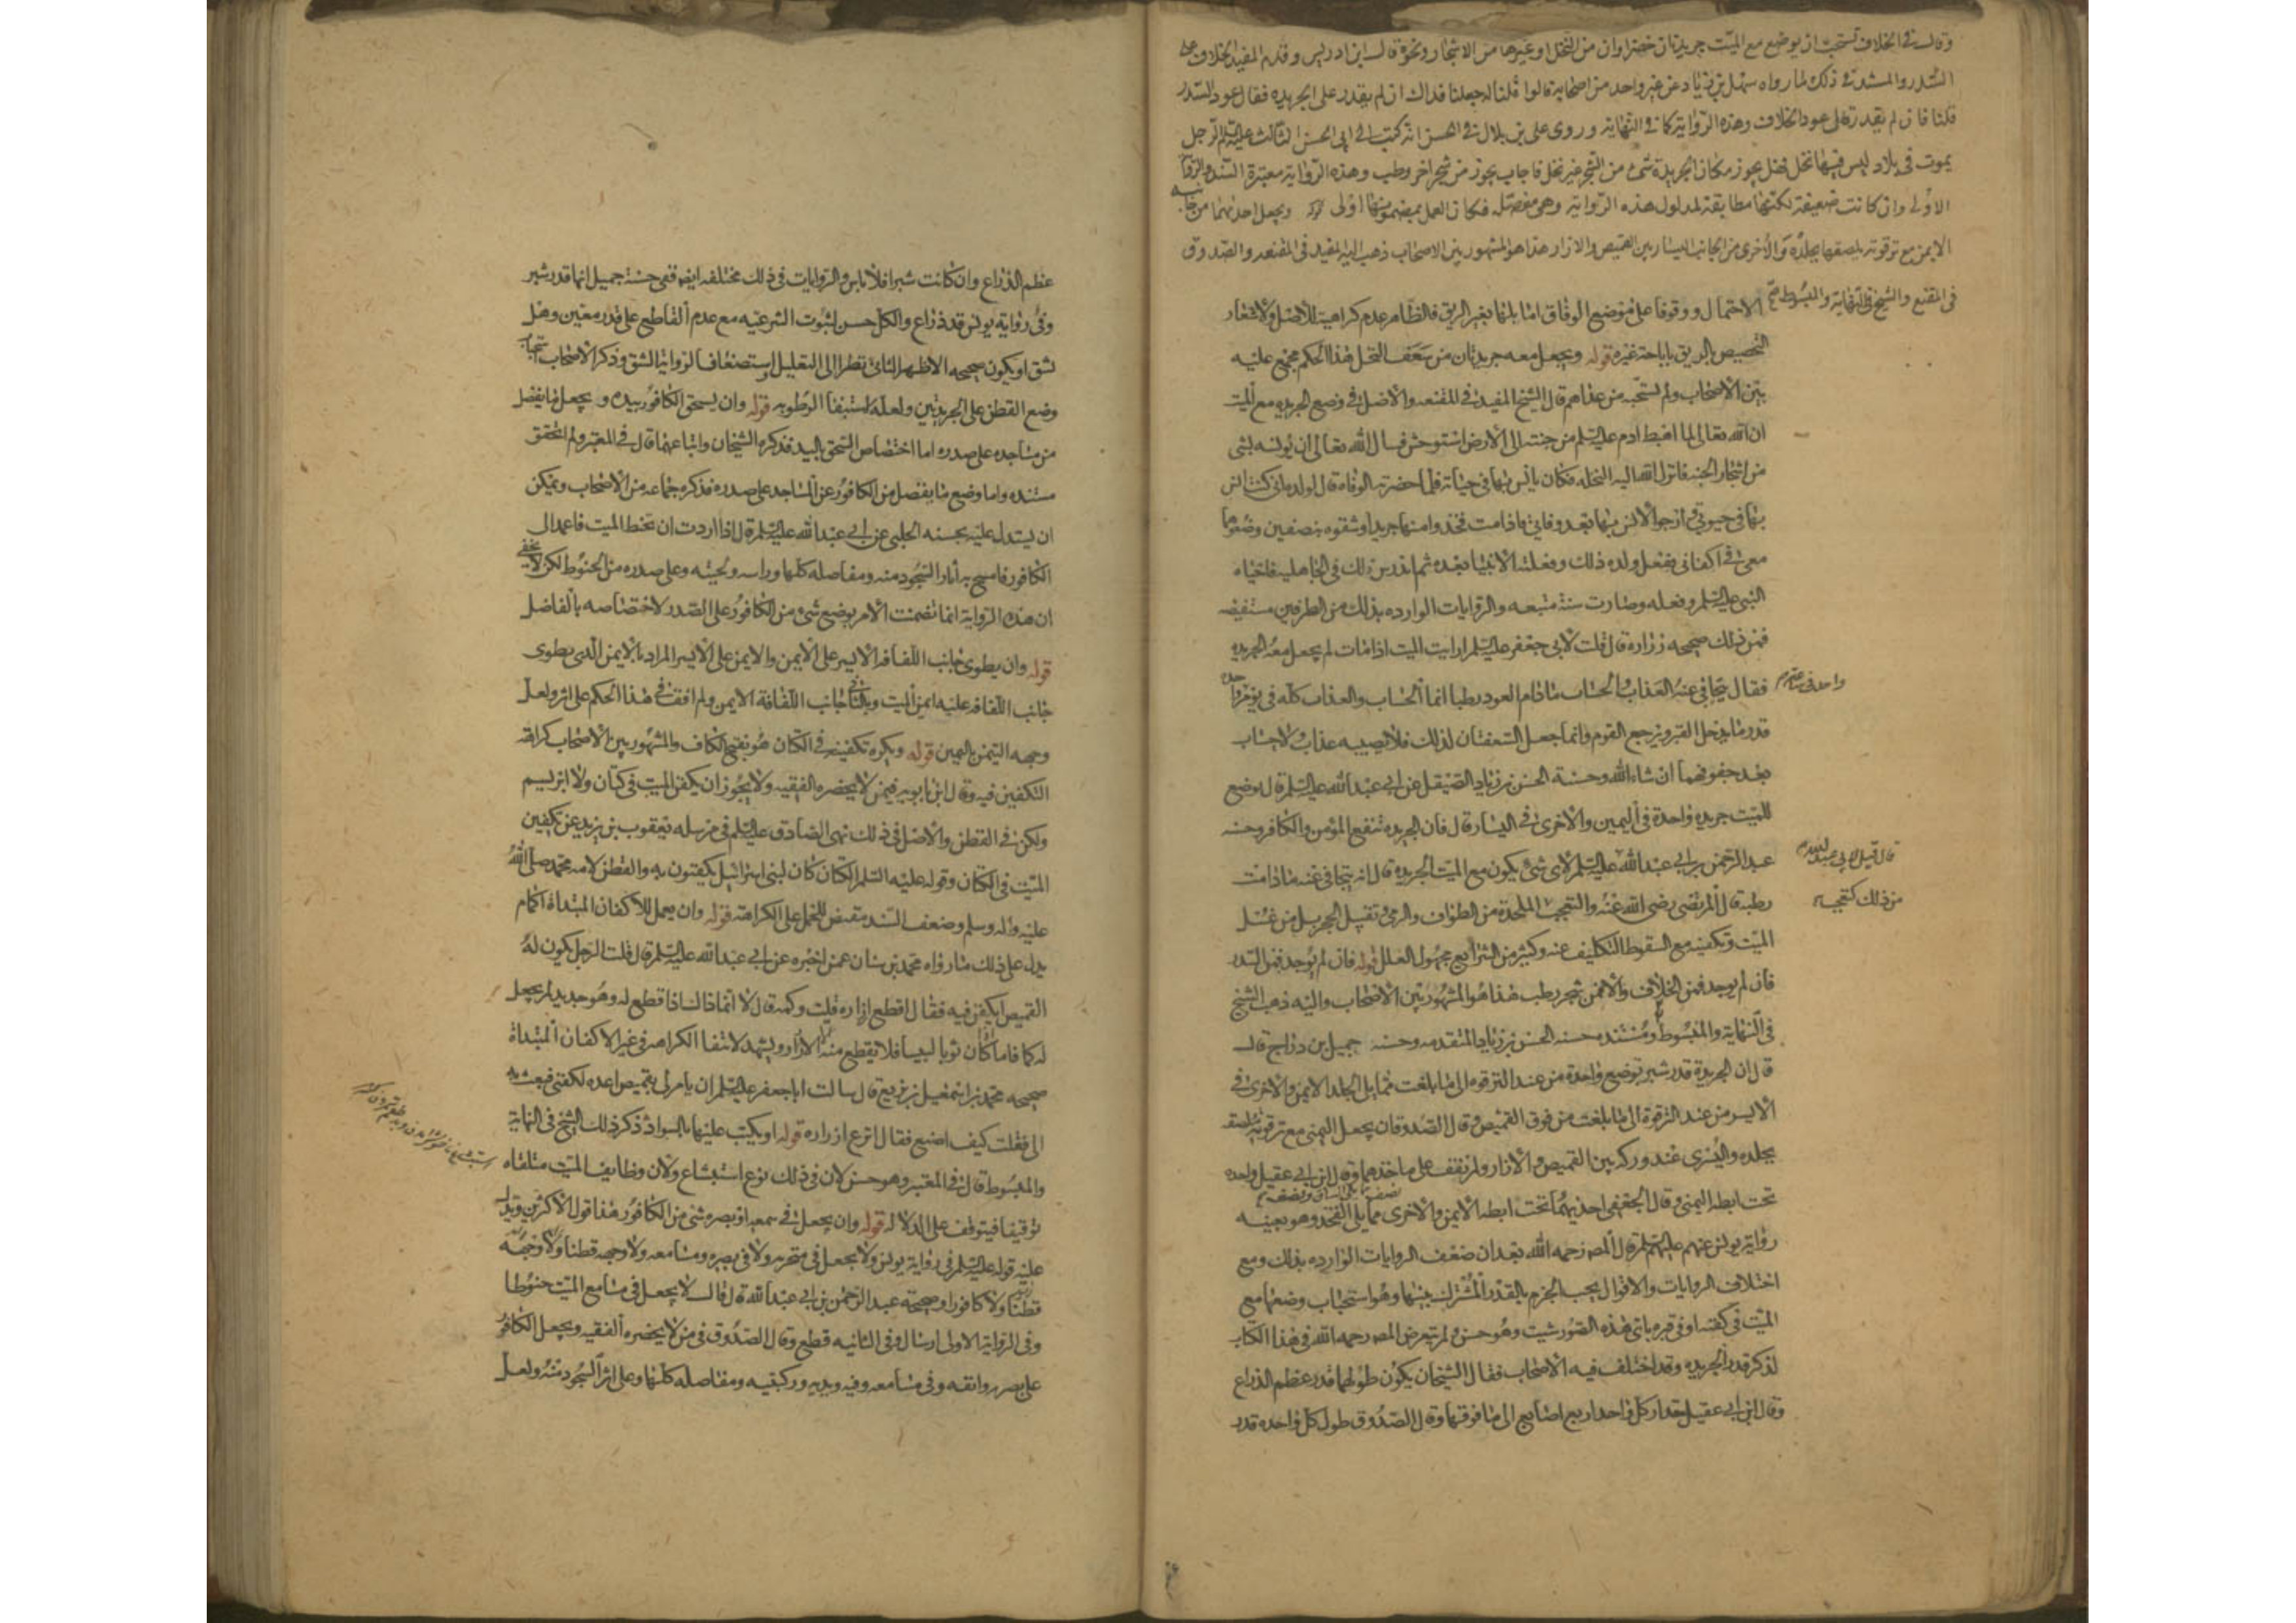 وقال في الخلاف يستحب ان يوضع مع الميت جريدتان خضراوان من النخل او غيرها من الاشجار ونحوه قال ابن ادريس وقدم المفيد الخلاف على
السدر والمستند في ذلك ما رواه سهل بن زياد عن غير واحد من اصحابنا قالوا قلنا له جعلنا فداك ان لم يقدر على الجريده فقال عود السدر
قلنا فان لم يقدر قال عود الخلاف وهذه الرواية كما في النهاية وروى علي بن بلال انه كتب الى ابي الحسن الثالث عليه السلم الرجل
يموت في بلاد ليس فيها نخل فهل يجوز مكان الجريدة شئ من الشجر غير نخل فاجاب يجوز من شجر اخر رطب وهذه الرواية معتبرة السند والرواية
الاولى وان كانت ضعيفة لكنها مطابقة لمدلول هذه الرواية وهي مفصلة فكان العمل بمضمونها اولى قوله ويجعل احدهما من جانبه
الايمن مع ترقوته يلصقها بجلده والاخرى من الجانب اليسار بين القميص والازار هذا هو المشهور بين الاصحاب ذهب اليه المفيد في المقنعه والصدوق
في المقنع والشيخ في النهاية والمبسوط صح
الاحتمال ووقوفا على موضع الوفاق اما بلها بغير الريق فالظاهر عدم كراهيته للاصل ولاشعار
التخصيص بالريق باباحة غيره قوله ويجعل معه جريدتان من سعف النخل هذا الحكم مجمع عليه
بين الاصحاب ولم يستحبه من عداهم قال الشيخ المفيد في المقنعه والاصل في وضع الجريده مع الميت
ان الله تعالى لما اهبط ادم عليه السلم من جنته الى الارض استوحش فسال الله تعالى ان يونسه بشى
من اشجار الجنه فانزل الله اليه النخله فكان يانس بها في حياته فلما حضرته الوفاه قال لولده اني كنت انس
بها في حيوتي وارجو الانس بها بعد وفاتي فاذا مت فخذوا منها جريدا وشقوه بنصفين وضعوهما
معي في اكفاني ففعل ولده ذلك وفعلته الانبيا بعده ثم اندرس ذلك في الجاهليه فاحياه
النبي عليه السلم وفعله وصارت سنة متبعه والروايات الوارده بذلك من الطرفين مستفيضه
فمن ذلك صحيحه زراره قال قلت لابي جعفر عليه السلم ارايت الميت اذا مات لم يجعل معه الجريده
فقال يتجافى عنه العذاب والحساب ما دام العود رطبا انما الحساب والعذاب كله في يوم واحد
واحد في ساعة
قدر ما يدخل القبر ويرجع القوم وانما جعل السعفتان لذلك فلا يصيبه عذاب ولا حساب
بعد جفوفهما ان شاء الله وحسنة الحسن بن زياد الصيقل عن ابي عبد الله عليه السلم قال يوضع
للميت جريده واحدة في اليمين والاخرى في اليسار قال فان الجريده تنفع المؤمن والكافر وحسنه
عبد الرحمن بن ابي عبد الله عليه السلم لاي شئ يكون مع الميت الجريده قال انه يتجافى عنه ما دامت
قال قيل لابي عبد الله
رطبه قال المرتضى رضي الله عنه والتعجب الملحدة من الطواف والرمي وتقبيل الحجر بل من غسل
من ذلك كتعجب
الميت وتكفينه مع السقوط التكليف عنه وكثير من الشرايع مجهول العلل قوله فان لم يوجد فمن السدر
فان لم يوجد فمن الخلاف والا فمن شجر رطب هذا هو المشهور بين الاصحاب واليه ذهب الشيخ
في النهاية والمبسوط ومستنده حسنه الحسن بن زياد المتقدمه وحسنه جميل بن دراج قال
قال ان الجريدة قدر شبر توضع واحدة من عند الترقوه الى ما بلغت مما يلي الجلد الايمن والاخرى في
الايسر من عند الترقوة الى ما بلغت من فوق القميص وقال الصدوقان يجعل اليمنى مع ترقوته يلصقه
بجلده واليسرى عند وركه بين القميص والازار ولم نقف على ماخذهما وقال ابن ابي عقيل واحده
تحت ابطه اليمنى وقال الجعفي احديهما تحت ابطه الايمن والاخرى مما يلي الفخذ وهو بعينه
رواية يونس عنهم عليهم السلم قال المص رحمه الله بعد ان ضعف الروايات الوارده بذلك ومع
اختلاف الروايات والاقوال يجب الجزم بالقدر المشترك بينها وهو استحباب وضعها مع
الميت في كفنه او في قبره باي هذه الصور شيت وهو حسن ولم يتعرض المص رحمه الله في هذا الكتاب
لذكر قدر الجريده وقد اختلف فيه الاصحاب فقال الشيخان يكون طولها قدر عظم الذراع
وقال ابن ابي عقيل مقدار كل واحد اربع اصابع الى ما فوقها وقال الصدوق طول كل واحده قدر
عظم الذراع وان كانت شبرا فلا باس والروايات في ذلك مختلفه ايضا ففي حسنة جميل انها قدر شبر
وفي رواية يونس قدر ذراع والكل حسن لثبوت الشرعيه مع عدم القاطع على قدر معين وهل
يشق او يكون صحيحه الاظهر الثاني نظرا الى التعليل واستضعافا لرواية الشق وذكر الاصحاب استحباب
وضع القطن على الجريدتين ولعله لاستبقا الرطوبه قوله وان يسحق الكافور بيده ويجعل ما يفضل
من مساجده على صدره اما اختصاص السحق باليد فذكره الشيخان واتباعهما قال في المعتبر ولم اتحقق
مستنده واما وضع ما يفضل من الكافور عن المساجد على صدره فذكره جماعه من الاصحاب ويمكن
ان يستدل عليه بحسنه الحلبي عن ابي عبد الله عليه السلم قال اذا اردت ان تحنط الميت فاعمد الى
الكافور فامسح به اثار السجود منه ومفاصله كلها وراسه ولحيته وعلى صدره من الحنوط لكن لا يخفى
ان هذه الرواية انما تضمنت الامر بوضع شئ من الكافور على الصدر لا اختصاصه بالفاضل
قوله وان يطوى جانب اللفافه الايسر على الايمن والايمن على الايسر المراد بالايمن الذي يطوى
جانب اللفافه عليه ايمن الميت وبالثاني جانب اللفافة الايمن ولم اقف في هذا الحكم على اثر ولعل
وجهه التيمن باليمين قوله ويكره تكفينه في الكتان هو بفتح الكاف والمشهور بين الاصحاب كراهة
التكفين فيه وقال ابن بابويه فيمن لا يحضره الفقيه ولا يجوز ان يكفن الميت في كتان ولا ابريسم
ولكن في القطن والاصل في ذلك نهى الصادق عليه السلم في مرسله يعقوب بن يزيد عن تكفين
الميت في الكتان وقوله عليه السلم الكتان كان لبني اسرائيل يكفنون به والقطن لامه محمد صلى الله
عليه واله وسلم وضعف السند مقتض للحمل على الكراهة قوله وان يعمل للاكفان المبتداة اكمام
يدل على ذلك ما رواه محمد بن سنان عمن اخبره عن ابي عبد الله عليه السلم قال قلت الرجل يكون له
القميص ايكفن فيه فقال اقطع ازاره قلت وكمه قال لا انما ذاك اذا قطع له وهو جديد لم يجعل
له كما فاما اذا كان ثوبا لبيسا فلا يقطع منه الا الازرار ويشهد لانتفا الكراهه في غير الاكفان المبتداة
صحيحه محمد بن اسمعيل بن بزيع قال سالت ابا جعفر عليه السلم ان يامر لي بقميص اعده لكفني فبعث به
الي فقلت كيف اصنع فقال انزع ازراره قوله او يكتب عليها بالسواد ذكر ذلك الشيخ في النهاية
والمبسوط قال في المعتبر وهو حسن لان في ذلك نوع استبشاع ولان وظايف الميت متلقاه
توقيفا فيتوقف على الدلاله قوله وان يجعل في سمعه او بصره شئ من الكافور هذا قول الاكثر ويدل
عليه قوله عليه السلم في رواية يونس ولا يجعل في منخريه ولا في بصره ومسامعه ولا وجهه قطنا ولا
قطنا ولا كافورا وصحيحة عبد الرحمن بن ابي عبد الله قال قال لا يجعل في مسامع الميت حنوطا
وفي الرواية الاولى ارسال وفي الثانيه قطع وقال الصدوق في من لا يحضره الفقيه ويجعل الكافور
على بصره وانفه وفي مسامعه وفيه ويديه وركبتيه ومفاصله كلها وعلى اثر السجود منه ولعل